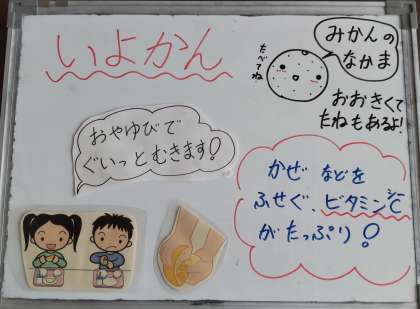 いよかん
みかんの
なかま
たべてね
おおきくて
たねもあるよ!
おやゆびで
ぐいっとむきます!
かぜ などを
ふせぐ、ビタミンC
がたっぷり!